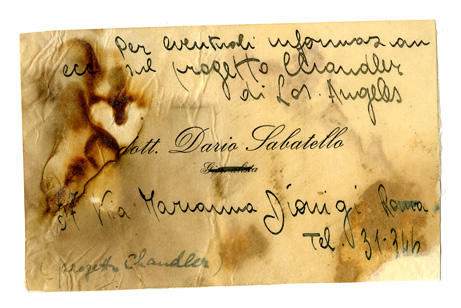 Per eventuali informazioni
ecc. sul progetto Chandler
di Los Angeles
dott. Dario Sabatello
Giornalista
57 Via Marianna Dionigi Roma
Tel. 31-346
(progetto Chandler)